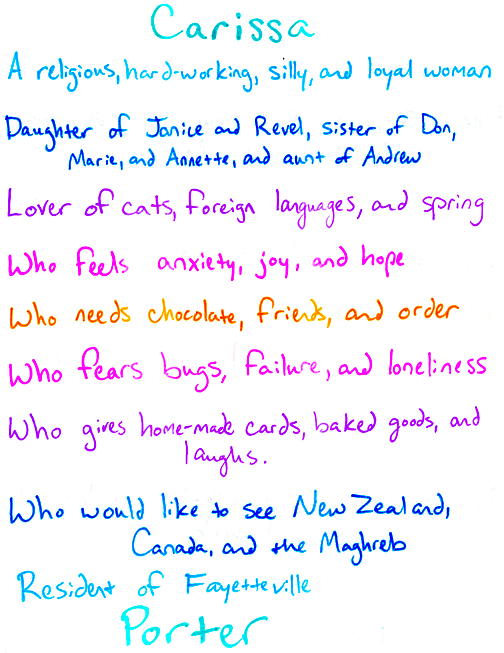 Carissa
A religious, hard-working, silly, and loyal woman
Daughter of Janice and Revel, sister of Don,
Marie, and Annette, and aunt of Andrew
Lover of cats, foreign languages, and spring
Who feels anxiety, joy, and hope
Who needs chocolate, friends, and order
Who fears bugs, failure, and loneliness
Who gives home-made cards, baked goods, and
laughs.
Who would like to see New Zealand,
Canada, and the Maghreb
Resident of Fayetteville
Porter